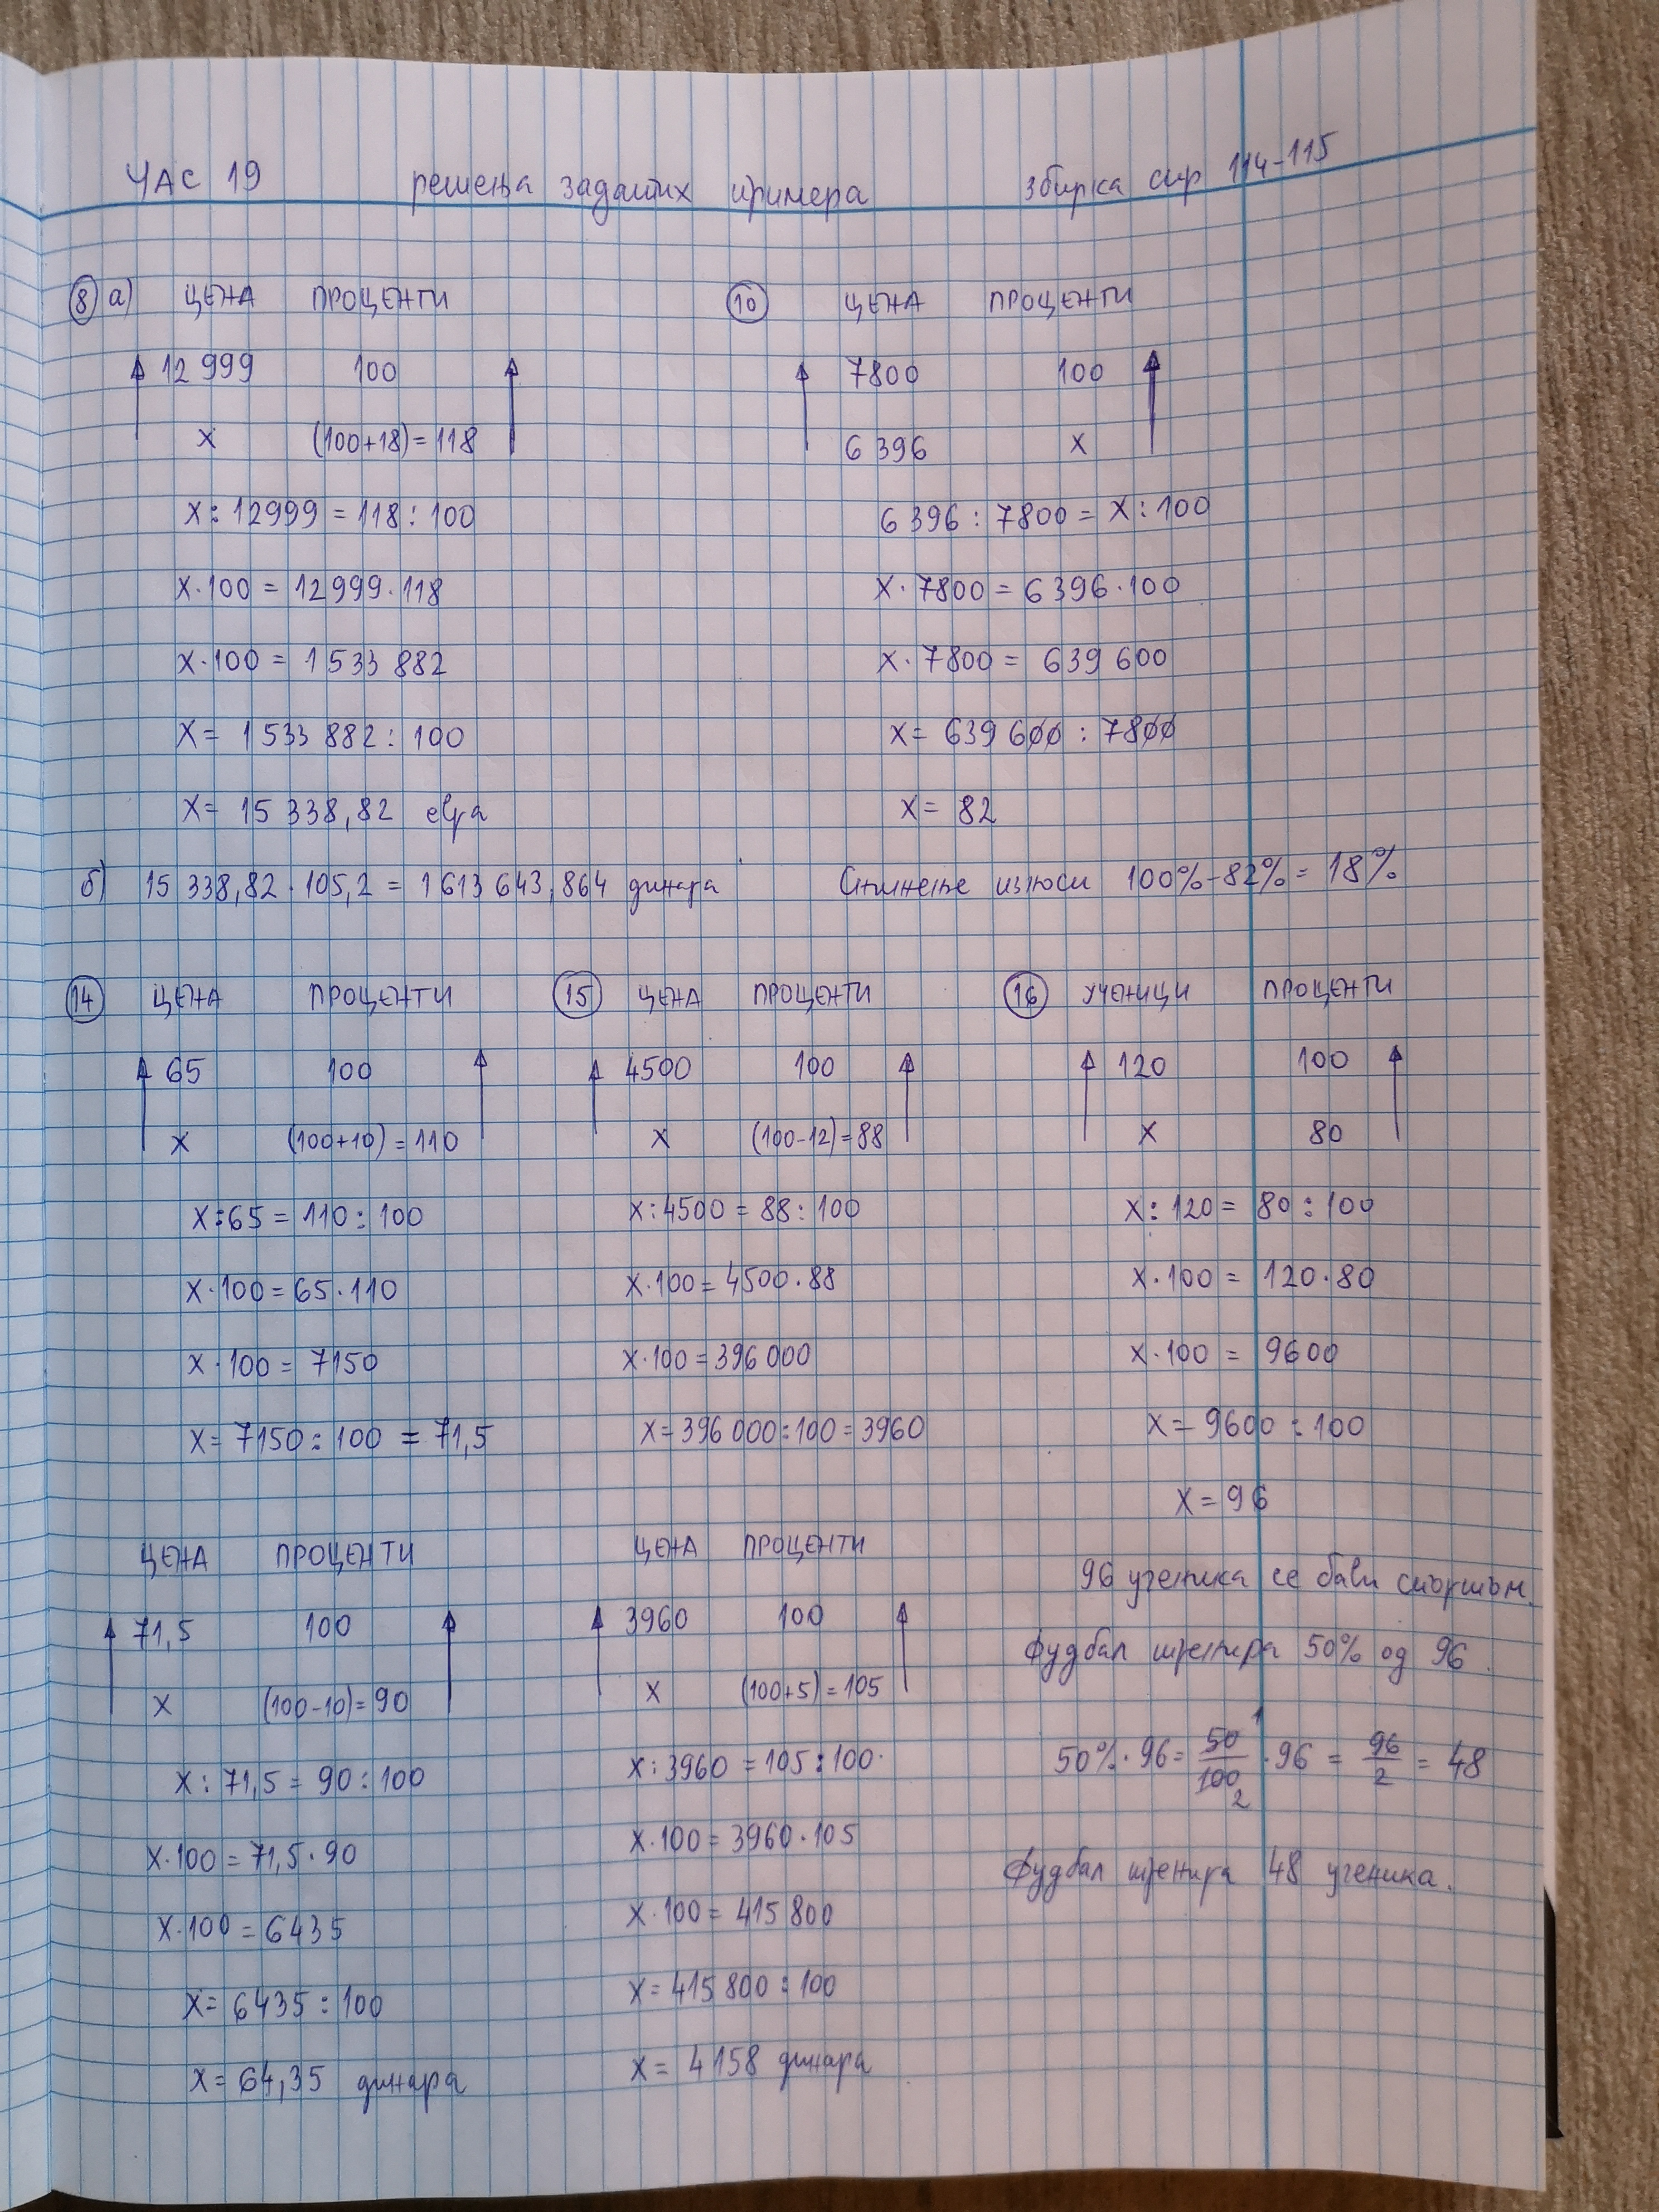 ЧАС 19 решења задатих примера збирка стр 114-115
8 а) ЦЕНА ПРОЦЕНТИ
12 999 100
x (100+18)=118
x:12999=118:100
x·100=12999·118
x·100=1533 882
x=1533 882:100
x=15 338,82 евра
б) 15 338,82·105,2=1 613 643,864 динара
10 ЦЕНА ПРОЦЕНТИ
7800 100
6 396 x
6 396:7800=x:100
x·7800=6 396·100
x·7800=639 600
x=639 600:7800
x=82
Снижење износи 100%-82%=18%
14 ЦЕНА ПРОЦЕНТИ
65 100
x (100+10)=110
x:65=110:100
x·100=65·110
x·100=7150
x=7150:100=71,5
ЦЕНА ПРОЦЕНТИ
71,5 100
x (100-10)=90
x:71,5=90:100
x·100=71,5·90
x·100=6435
x=6435:100
x=64,35 динара
15 ЦЕНА ПРОЦЕНТИ
4500 100
x (100-12)=88
x:4500=88:100
x·100=4500·88
x·100=396 000
x=396 000:100=3960
ЦЕНА ПРОЦЕНТИ
3960 100
x (100+5)=105
x:3960=105:100
x·100=3960·105
x·100=415 800
x=415 800:100
x=4158 динара
16 УЧЕНИЦИ ПРОЦЕНТИ
120 100
x 80
x:120=80:100
x·100=120·80
x·100=9600
x=9600:100
x=96
96 ученика се бави спортом.
Фудбал тренира 50% од 96.
50%·96=50/100·96=96/2=48
1
2
Фудбал тренира 48 ученика.